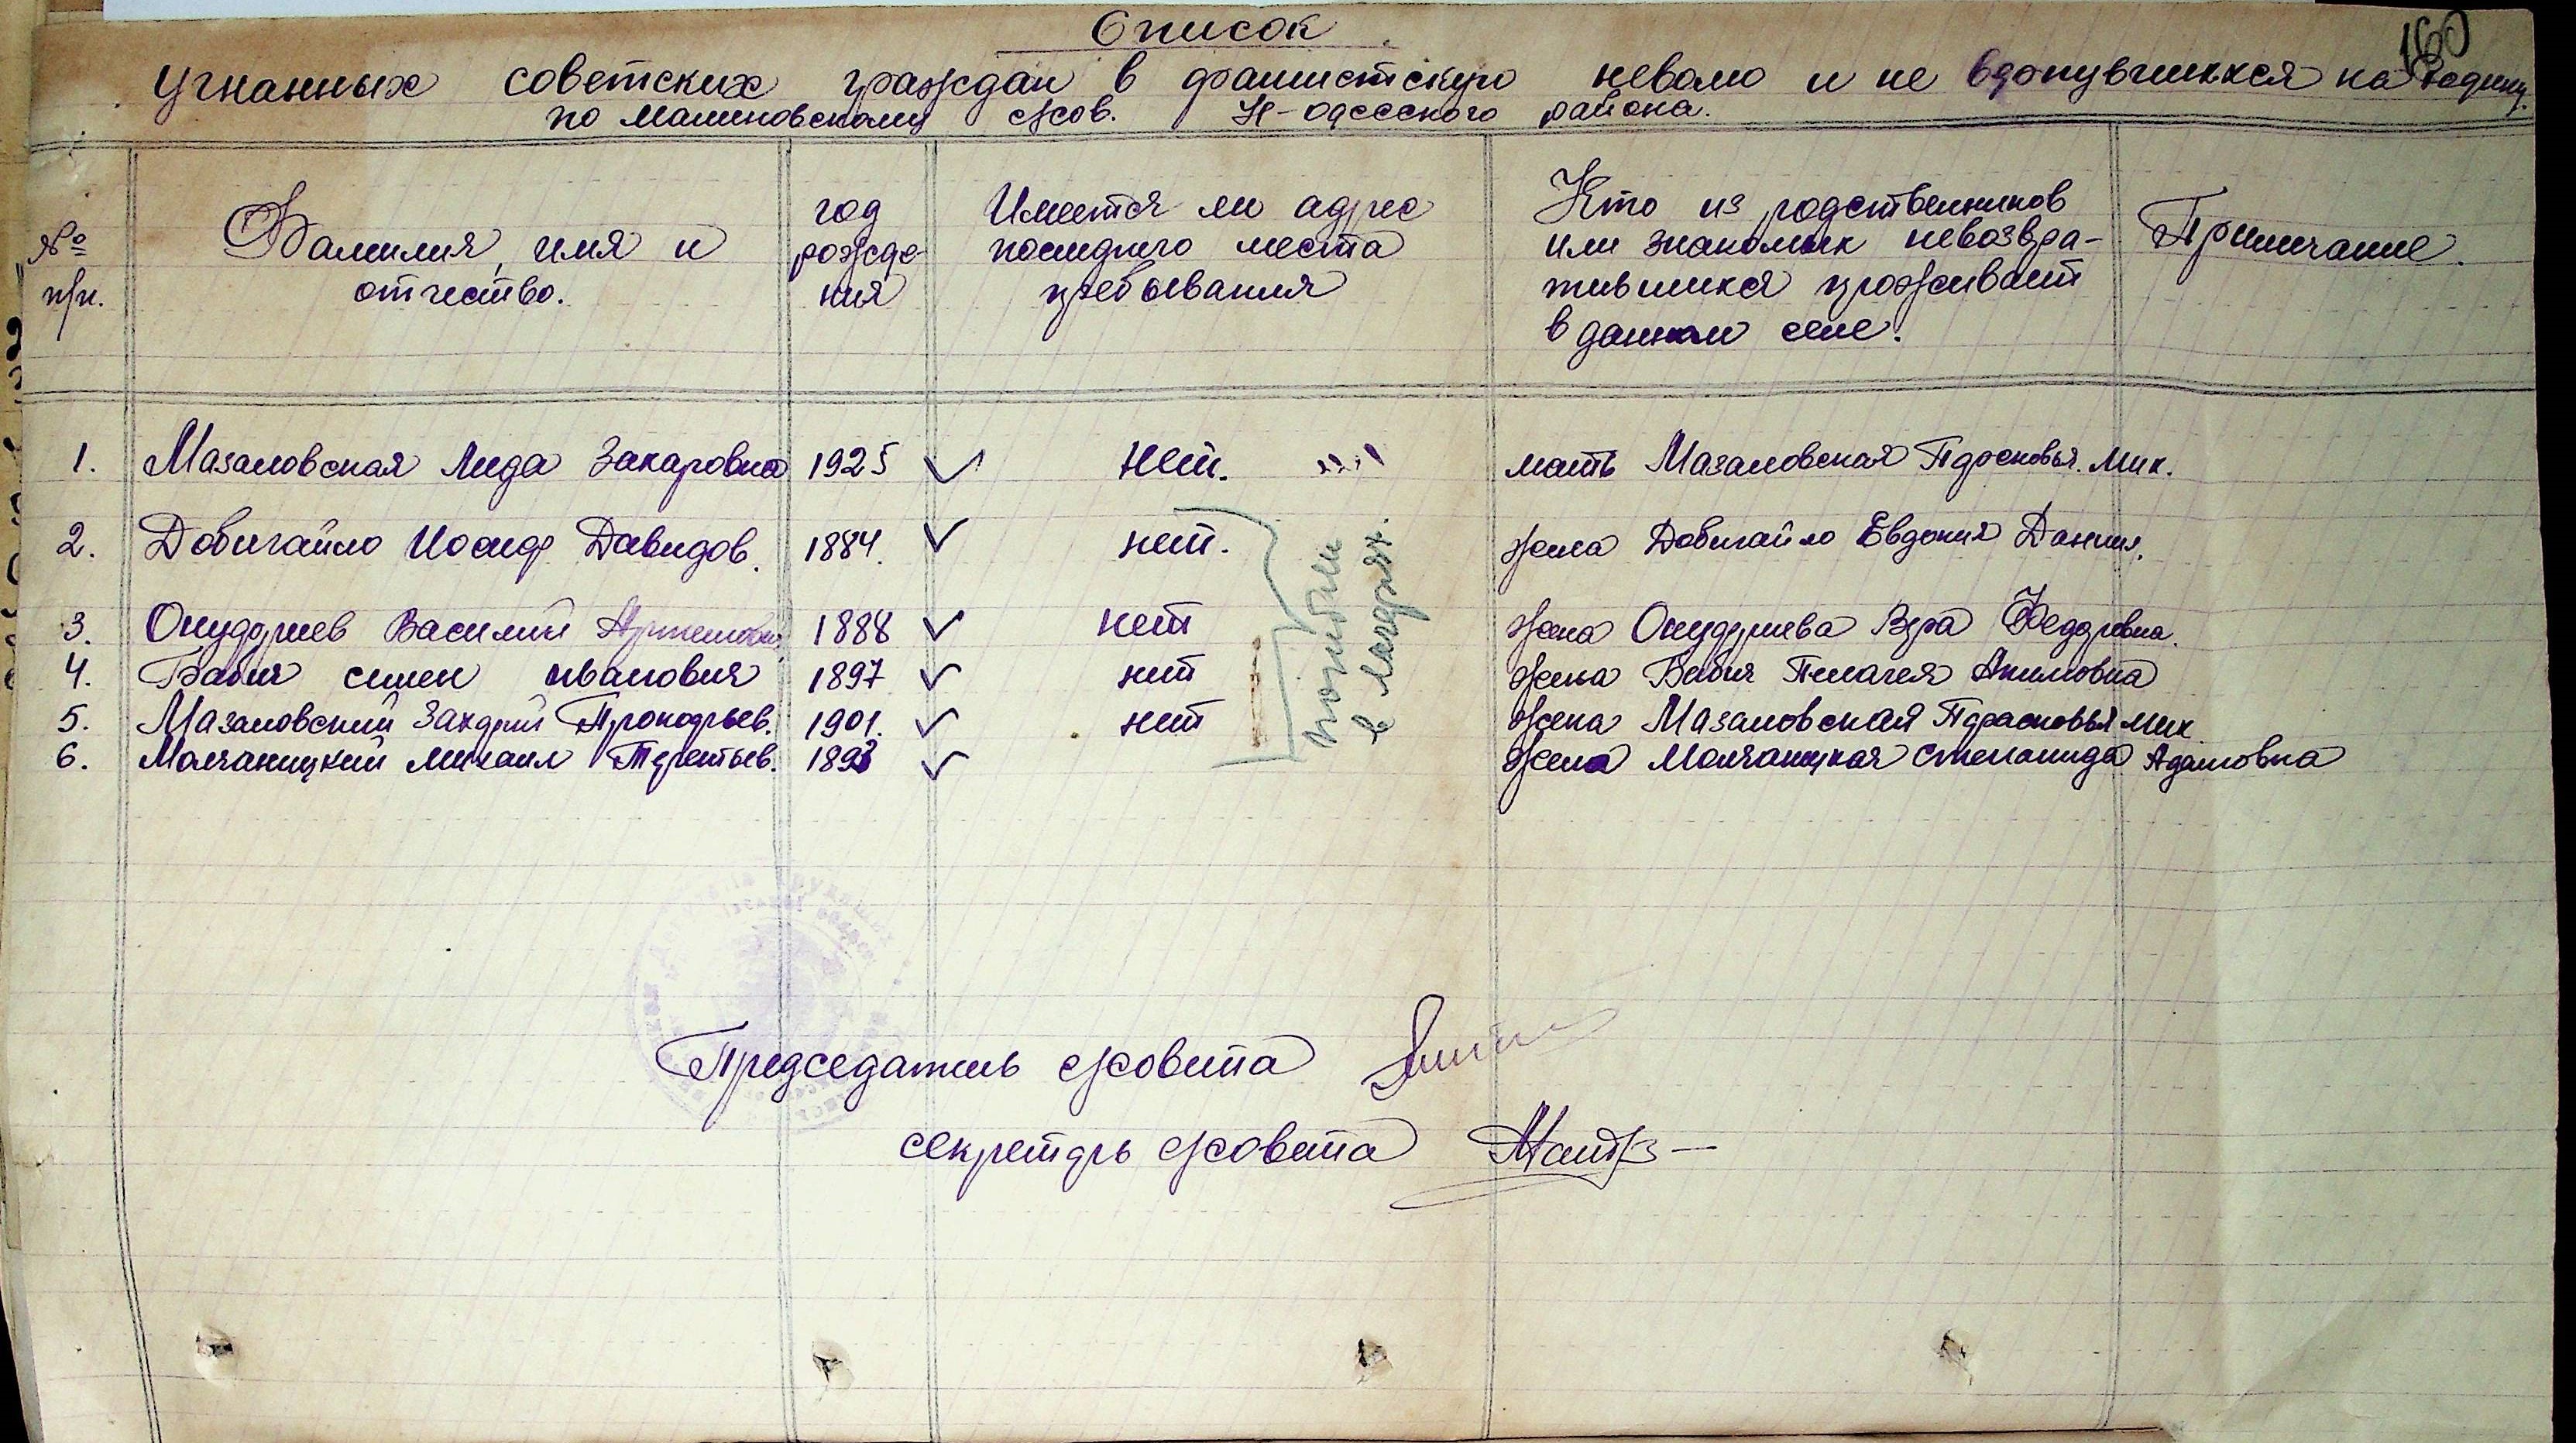 160
Список
угнанных советских граждан в фашистскую неволю и не вернувшихся на Родину.
по Малиновскому с/сов. Н-Одесского района.
№ п/п.
Фамилия, имя и отчество.
год рожде-ния
Имеется ли адрес последнего места пребывания
Кто из родственников или знакомых невозвра-тившихся проживает в данном селе.
Примечание.
1. Мазаловская Лида Захаровна 1925 ✓ нет. мать Мазаловская Прасковья. Мик.
2. Добигайло Иосиф Давидов. 1884. ✓ нет. жена Добигайло Евдокия Данил.
3. Онуфриев Василий Артемов. 1888 ✓ нет жена Онуфриева Вера Федоровна.
4. Бабия Симен Ивановия 1897 ✓ нет жена Бабия Пелагея Акимовна
5. Мазаловский Захарий Прокофьев. 1901. ✓ нет жена Мазаловская Прасковья мик
6. Молчаницкий Михаил Терентьев. 1893 ✓ жена Молчаницкая Степанида Адамовна
погибли
в лагерях.
Председатель с/совета
секретарь с/совета